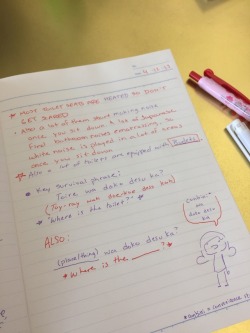 * MOST TOILET SEATS ARE HEATED SO DON'T
GET SCARED!
* Also a lot of them start making noise
once you sit down. A lot of Japanese
find bathroom noises embarrassing. So
white noise is played in a lot of areas
once you sit down.
* Also a lot of toilets are equipped with
* Key survival phrase:
Toire wa doko desu ka?
* "Where is the toilet?" *
ALSO:
(place/thing) wa doko desu ka?
* Where is the ______? *
wa
doko desu
ka?